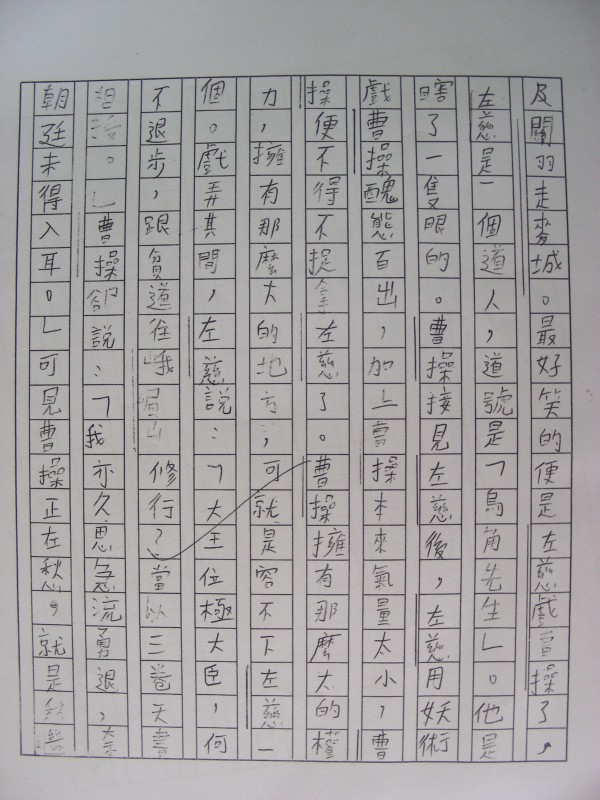 及關羽走麥城。最好笑的便是左慈戲曹操了，
左慈是一個道人，道號是「烏角先生」。他是
瞎了一隻眼的。曹操接見左慈後，左慈用妖術
戲曹操醜態百出，加上曹操本來氣量太小，曹
操便不得不捉拿左慈了。曹操擁有那麼大的權
力，擁有那麼大的地方，可就是容不下左慈一
個。戲弄其間，左慈說：「大王位極大臣，何
不退步，跟貧道往峨嵋山修行？當以三卷天書
相授。」曹操卻說：「我亦久思急流勇退，奈
朝廷未得入耳。」可見曹操正在愁，就是